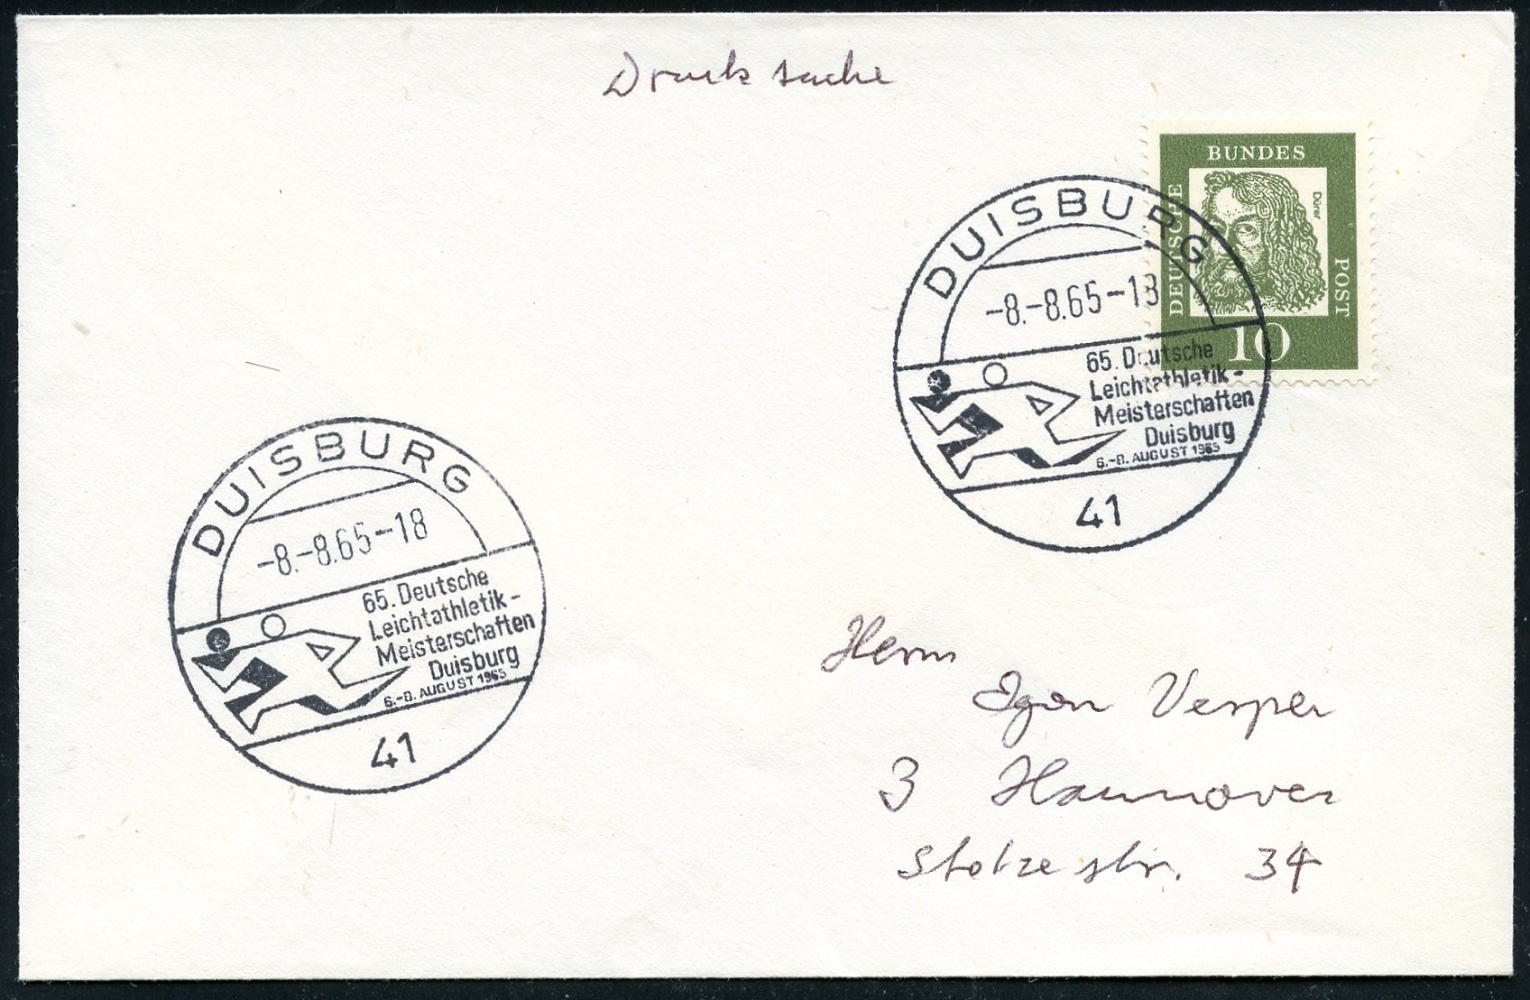 Drucksache
BUNDES
DEUTSCHE
POST
Dürer
10
DUISBURG
-8.-8.65-18
65. Deutsche
Leichtathletik-
Meisterschaften
Duisburg
6.-8. AUGUST 1965
41
DUISBURG
-8.-8.65-18
65. Deutsche
Leichtathletik-
Meisterschaften
Duisburg
6.-8. AUGUST 1965
41
Herrn
Egon Vesper
3 Hannover
Stolzestr. 34